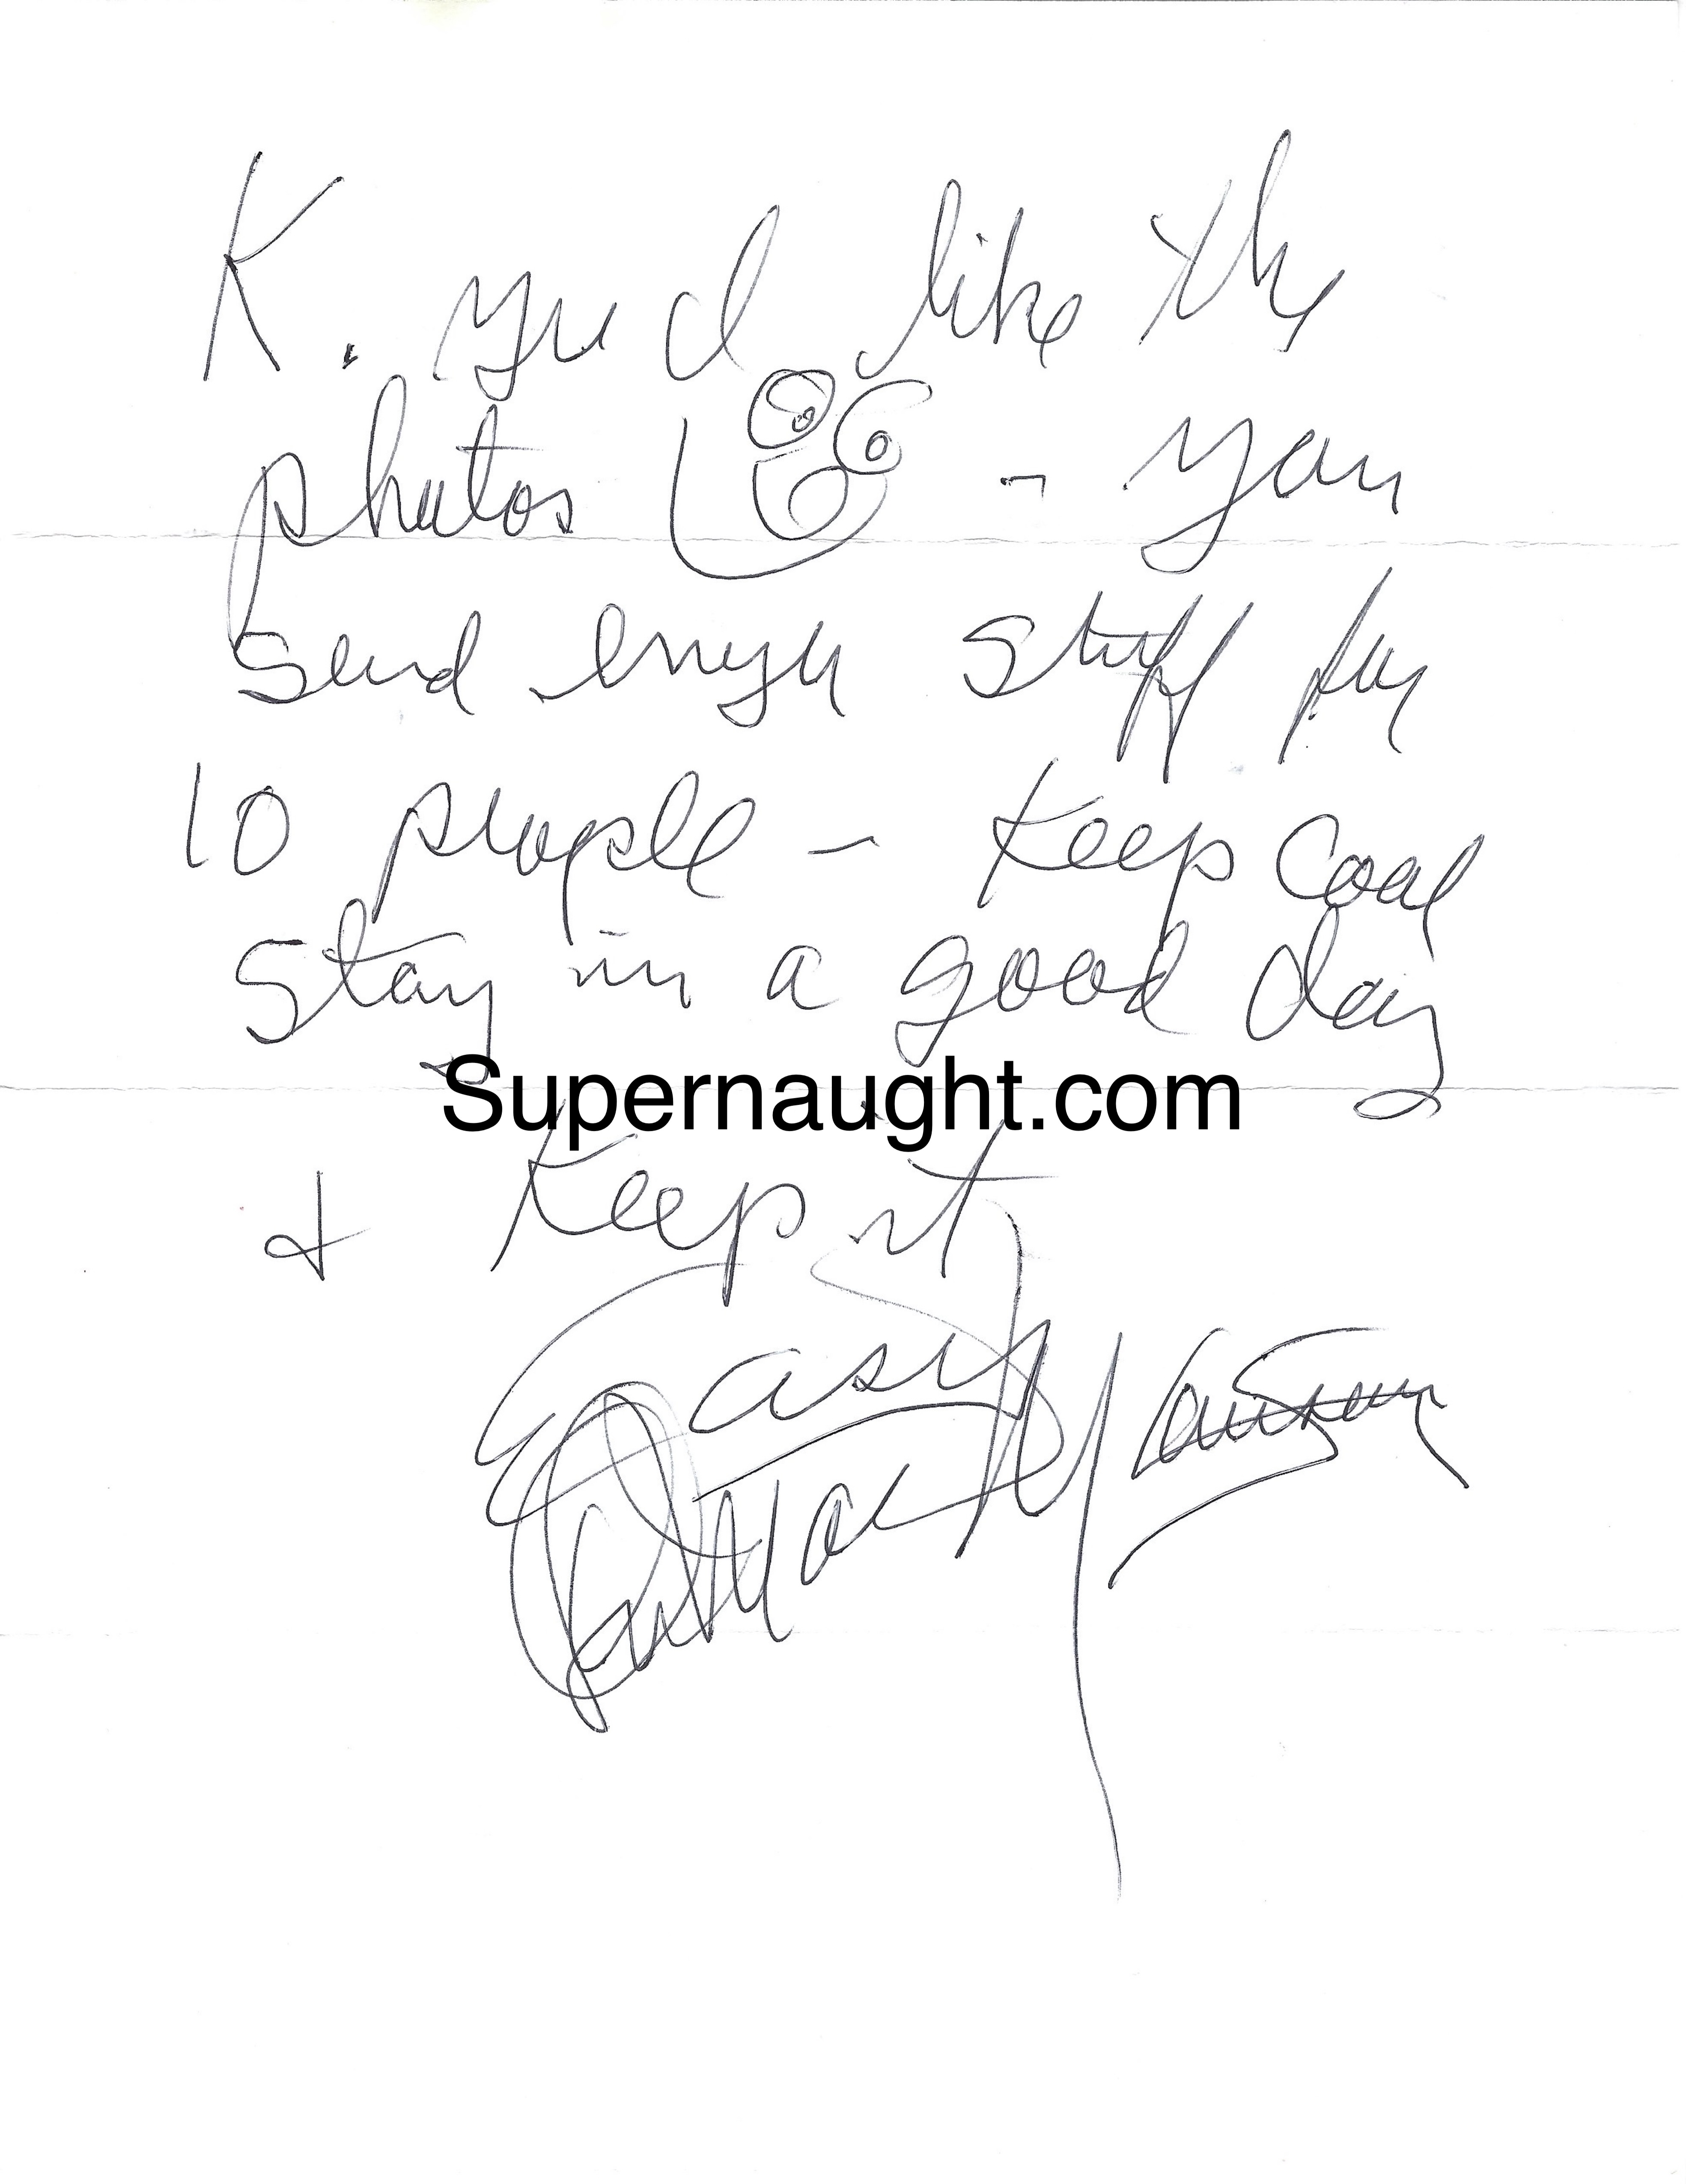 K. yu d like the
photos - you
send enyu stuff for
10 people - Keep Coal
Stay in a good day
Supernaught.com
+ Keep it
Easy
Manson